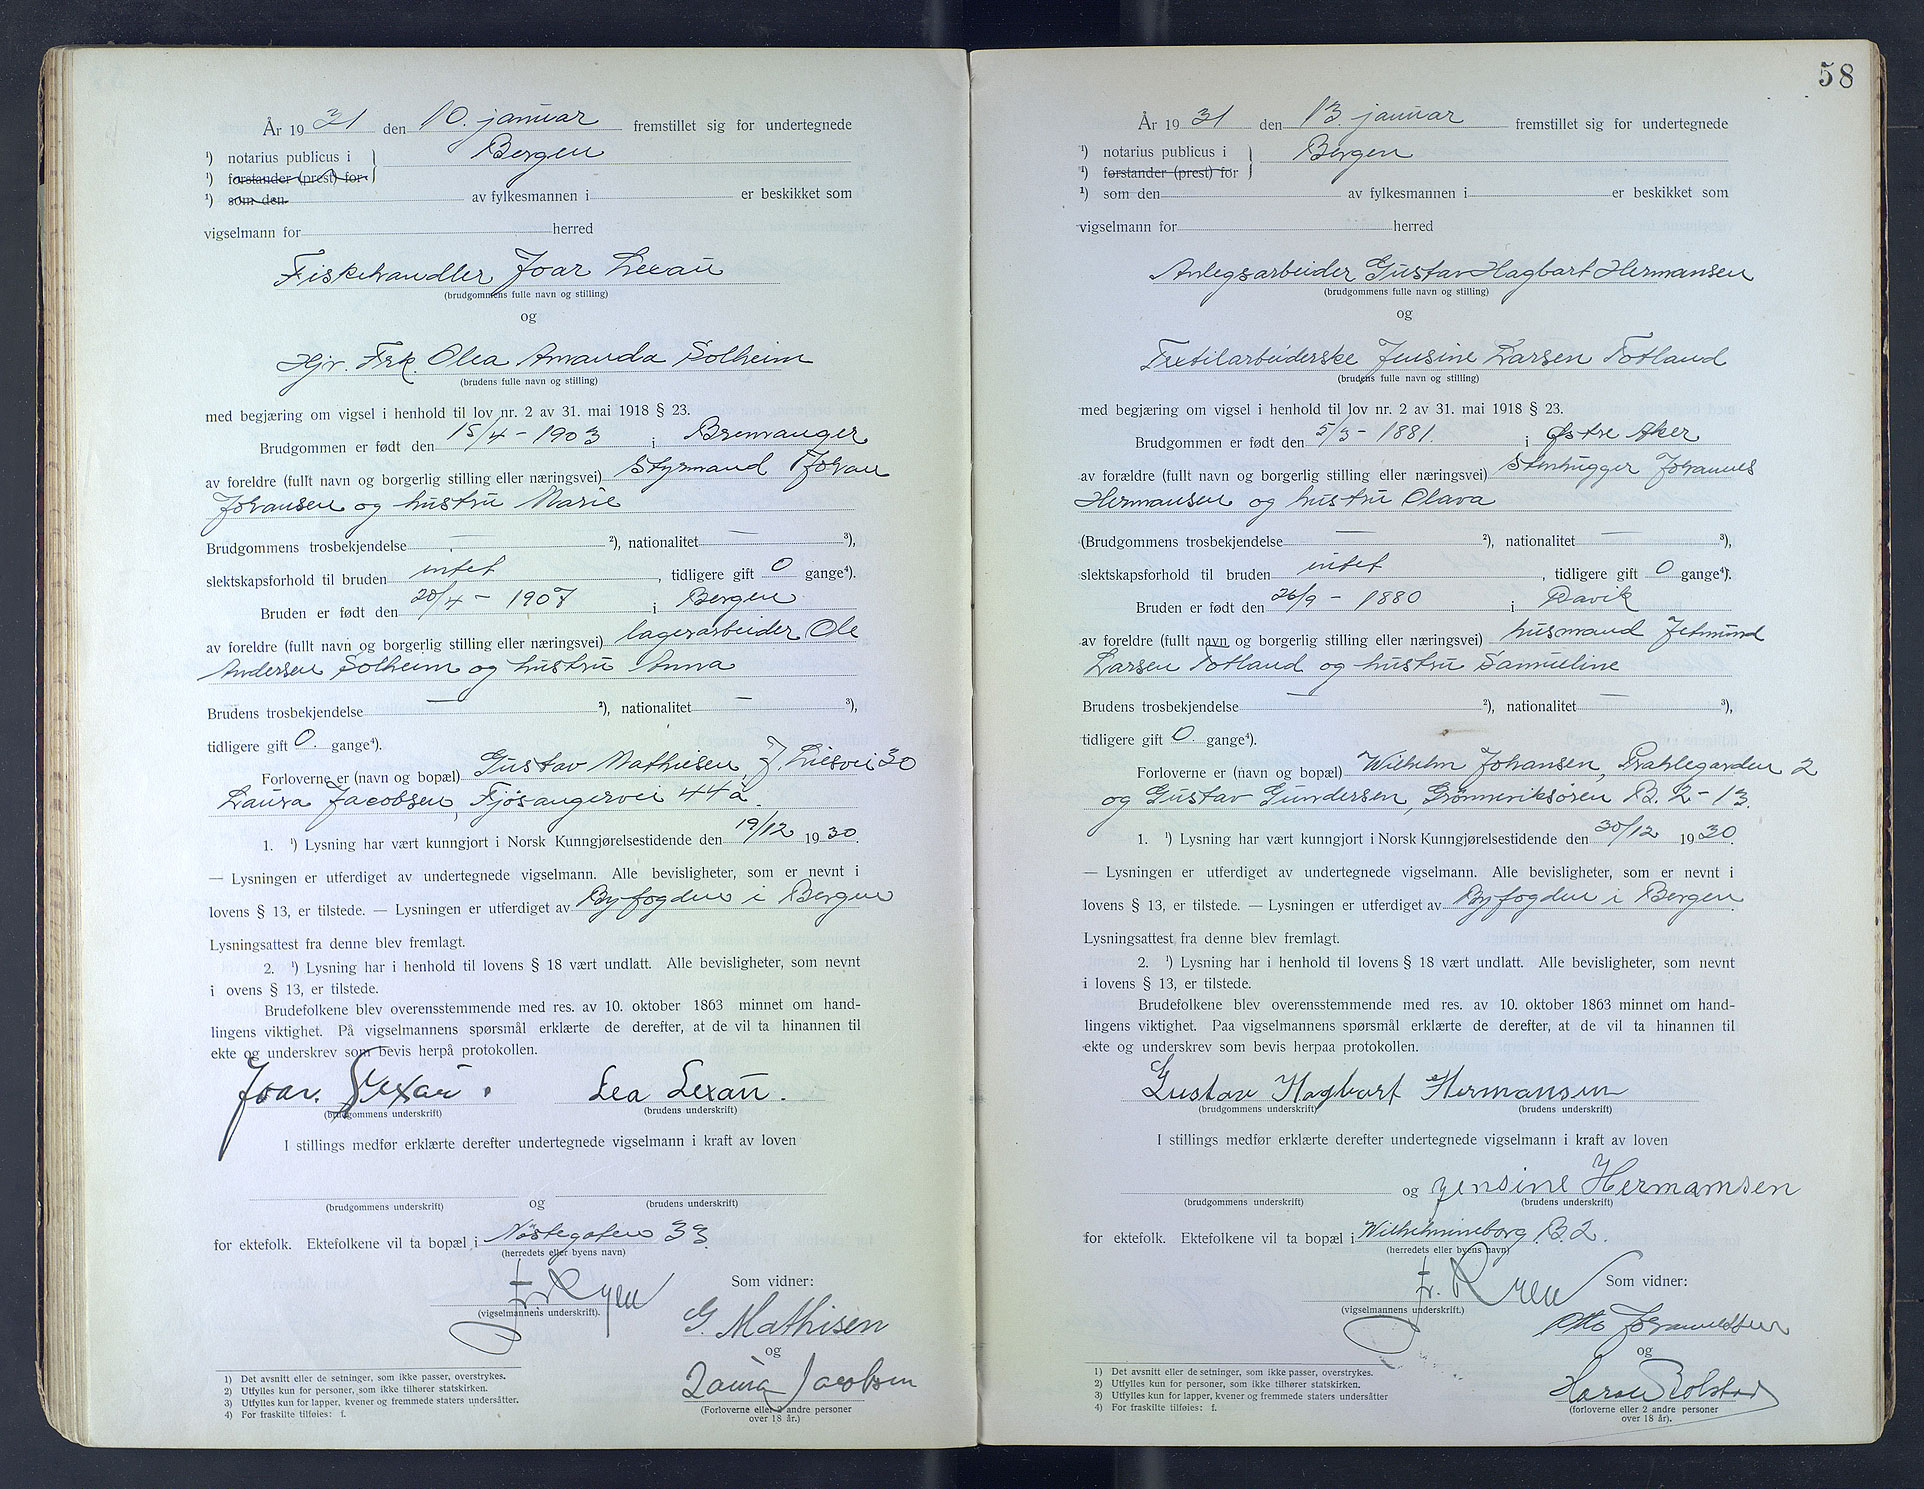 År 1931 den 10. januar fremstillet sig for undertegnede
¹) notarius publicus i Bergen
¹) forstander (prest) for
¹) som den av fylkesmannen i er beskikket som
vigselmann for herred
Fiskehandler Joar Lexau
(brudgommens fulle navn og stilling)
og
Hjv. Frk. Olea Amanda Solheim
(brudens fulle navn og stilling)
med begjæring om vigsel i henhold til lov nr. 2 av 31. mai 1918 § 23.
Brudgommen er født den 15/4 - 1903 i Bremanger
av foreldre (fullt navn og borgerlig stilling eller næringsvei) Styrmand Johan
Johansen og hustru Marie
Brudgommens trosbekjendelse — ²), nationalitet — ³),
slektskapsforhold til bruden intet, tidligere gift 0 gange⁴).
Bruden er født den 20/4 - 1907 i Bergen
av foreldre (fullt navn og borgerlig stilling eller næringsvei) lagerarbeider Ole
Andersen Solheim og hustru Anna
Brudens trosbekjendelse — ²), nationalitet — ³),
tidligere gift 0. gange⁴).
Forloverne er (navn og bopæl) Gustav Mathiesen, J. Liesvei 30
Laura Jacobsen, Fjøsangervei 44a.
1. ¹) Lysning har vært kunngjort i Norsk Kunngjørelsestidende den 19/12 1930.
— Lysningen er utferdiget av undertegnede vigselmann. Alle bevisligheter, som er nevnt i
lovens § 13, er tilstede. — Lysningen er utferdiget av Byfogden i Bergen
Lysningsattest fra denne blev fremlagt.
2. ¹) Lysning har i henhold til lovens § 18 vært undlatt. Alle bevisligheter, som nevnt
i ovens § 13, er tilstede.
Brudefolkene blev overensstemmende med res. av 10. oktober 1863 minnet om hand-
lingens viktighet. På vigselmannens spørsmål erklærte de derefter, at de vil ta hinannen til
ekte og underskrev som bevis herpå protokollen.
Joar Lexau. Lea Lexau.
(brudgommens underskrift) (brudens underskrift)
I stillings medfør erklærte derefter undertegnede vigselmann i kraft av loven
og
(brudgommens underskrift) (brudens underskrift)
for ektefolk. Ektefolkene vil ta bopæl i Nøstegaten 33
(herredets eller byens navn)
Som vidner:
Fr. Ryen
(vigselmannens underskrift).
G. Mathisen
og
Laura Jacobsen
(Forloverne eller 2 andre personer
over 18 år.)
1) Det avsnitt eller de setninger, som ikke passer, overstrykes.
2) Utfylles kun for personer, som ikke tilhører statskirken.
3) Utfylles kun for lapper, kvener og fremmede staters undersåtter.
4) For fraskilte tilføies: f.
58
År 1931 den 13. januar fremstillet sig for undertegnede
¹) notarius publicus i Bergen
¹) forstander (prest) for
¹) som den av fylkesmannen i er beskikket som
vigselmann for herred
Anlegsarbeider Gustav Hagbart Hermansen
(brudgommens fulle navn og stilling)
og
Textilarbeiderske Jensine Larsen Totland
(brudens fulle navn og stilling)
med begjæring om vigsel i henhold til lov nr. 2 av 31. mai 1918 § 23.
Brudgommen er født den 5/3 - 1881. i Østre Aker
av forældre (fullt navn og borgerlig stilling eller næringsvei) Stenhugger Johannes
Hermansen og hustru Olava
(Brudgommens trosbekjendelse — ²), nationalitet — ³),
slektskapsforhold til bruden intet, tidligere gift 0 gange⁴).
Bruden er født den 26/9 - 1880 i Davik
av foreldre (fullt navn og borgerlig stilling eller næringsvei) husmand Jetmund
Larsen Totland og hustru Samueline
Brudens trosbekjendelse — ²), nationalitet — ³),
tidligere gift 0. gange⁴).
Forloverne er (navn og bopæl) Wilhelm Johansen, Prahlegården 2
og Gustav Gundersen, Grønneviksøren B. 2 - 13.
1. ¹) Lysning har vært kunngjort i Norsk Kunngjørelsestidende den 30/12 1930.
— Lysningen er utferdiget av undertegnede vigselmann. Alle bevisligheter, som er nevnt i
lovens § 13, er tilstede. — Lysningen er utferdiget av Byfogden i Bergen.
Lysningsattest fra denne blev fremlagt.
2. ¹) Lysning har i henhold til lovens § 18 vært undlatt. Alle bevisligheter, som nevnt
i lovens § 13, er tilstede.
Brudefolkene blev overensstemmende med res. av 10. oktober 1863 minnet om hand-
lingens viktighet. Paa vigselmannens spørsmål erklærte de derefter, at de vil ta hinannen til
ekte og underskrev som bevis herpaa protokollen.
Gustav Hagbart Hermansen
(brudgommens underskrift) (brudens underskrift)
I stillings medfør erklærte derefter undertegnede vigselmann i kraft av loven
og Jensine Hermamsen
(brudgommens underskrift) (brudens underskrift)
for ektefolk. Ektefolkene vil ta bopæl i Wilhelmineborg B. 2.
(herredets eller byens navn)
Som vidner:
Fr. Ryen
(vigselmannens underskrift.)
Otto
og
Rolstad
(forloverne eller 2 andre personer
over 18 år).
1) Det avsnitt eller de setninger, som ikke passer, overstrykes.
2) Utfylles kun for personer, som ikke tilhører statskirken.
3) Utfylles kun for lapper, kvener og fremmede staters undersåtter
4) For fraskilte tilføies: f.